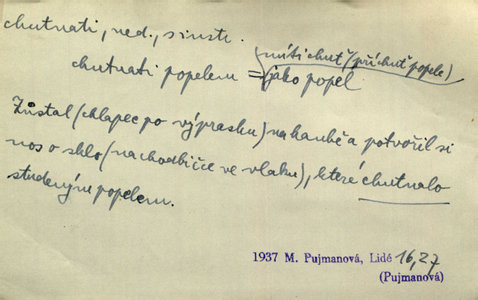 chutnati, ned., s instr.
míti chuť (příchuť popele)
chutnati popelem = jako popel
Zůstal (chlapec po výprasku) na hanbě a potvořil si
nos o sklo (na chodbičce ve vlaku), které chutnalo
studeným popelem.
1937 M. Pujmanová, Lidé 16, 27
(Pujmanová)